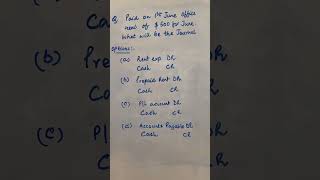 Q. Paid on 1st June office
rent of $500 for June
What will be the Journal
options:-
(a) Rent exp DR
Cash CR
(b) Prepaid Rent DR
Cash CR
(c) P/L account DR
Cash CR
(d) Accounts Payable DR
Cash CR
(b)
Pre
(c)
P/